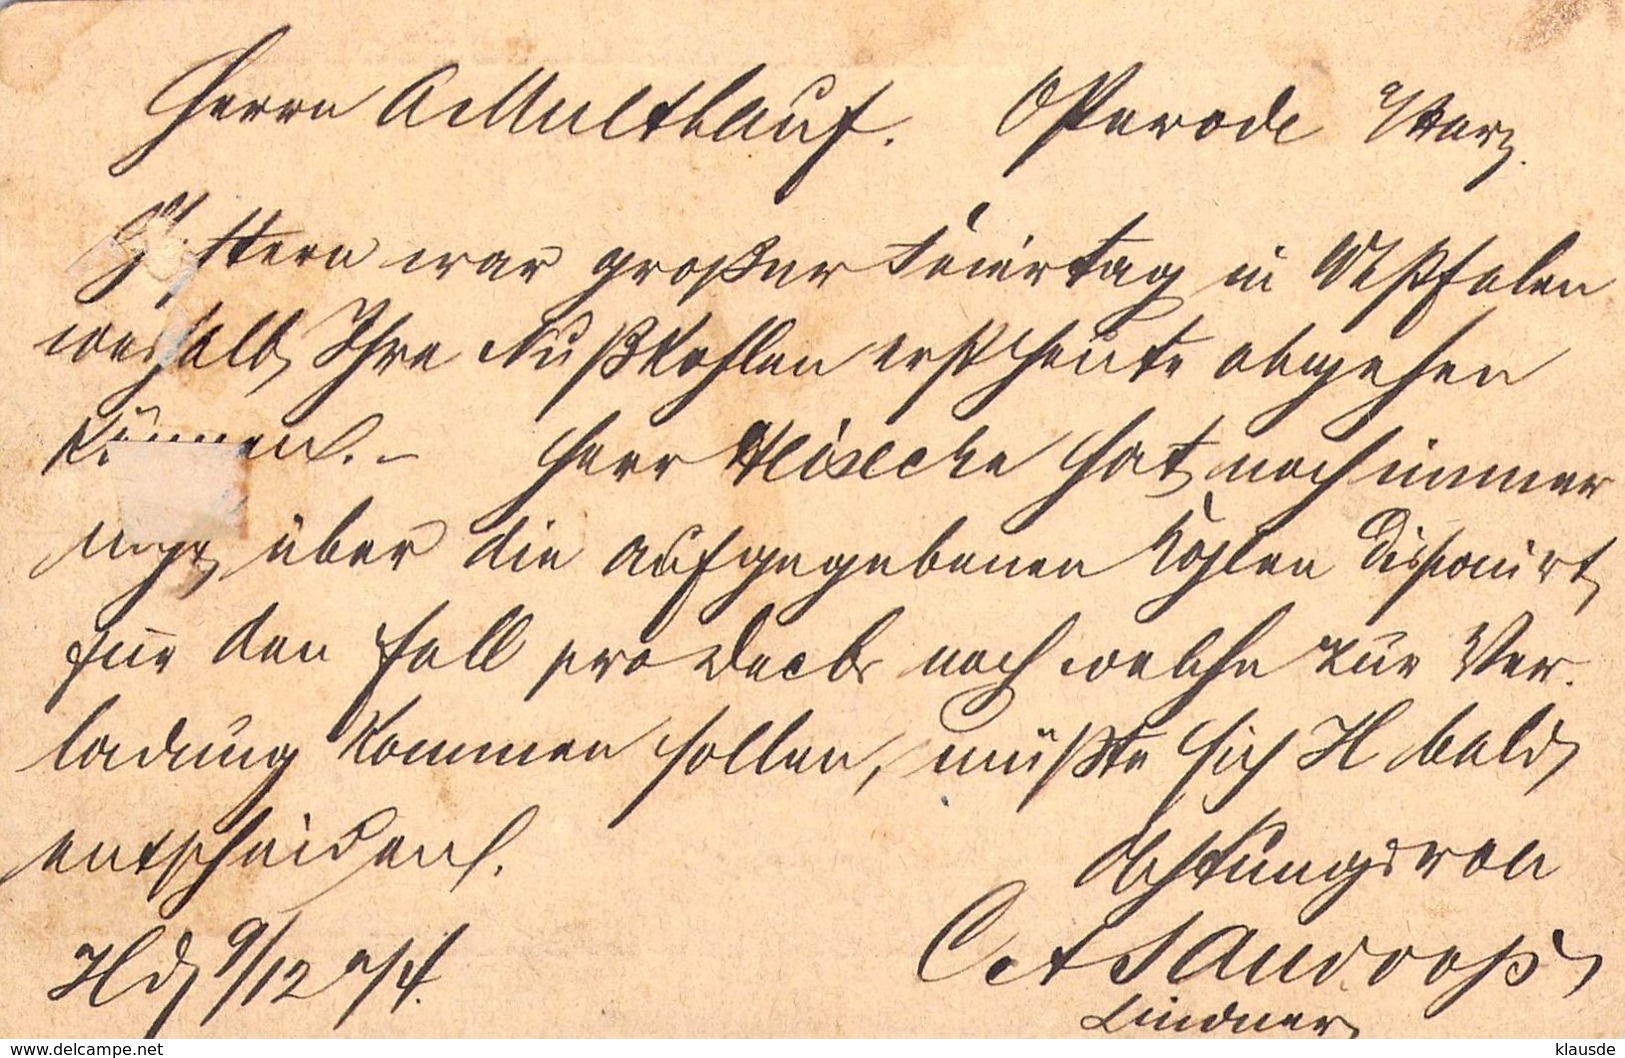 Herrn A Multhauf. Osterode a/Harz.
Gestern war großer Feiertag in Westfalen
weshalb Ihre Nußkohlen erst heute abgehen
können. – Herr hat noch immer
nicht über die aufgegebenen Kohlen disponirt
für den Fall pro Decbr noch welche zur Ver-
ladung kommen sollen, müßte sich H bald
entscheiden.
Achtungsvoll
Hd 9/12 74.
C & A
Lindner
www.delcampe.net
klausde